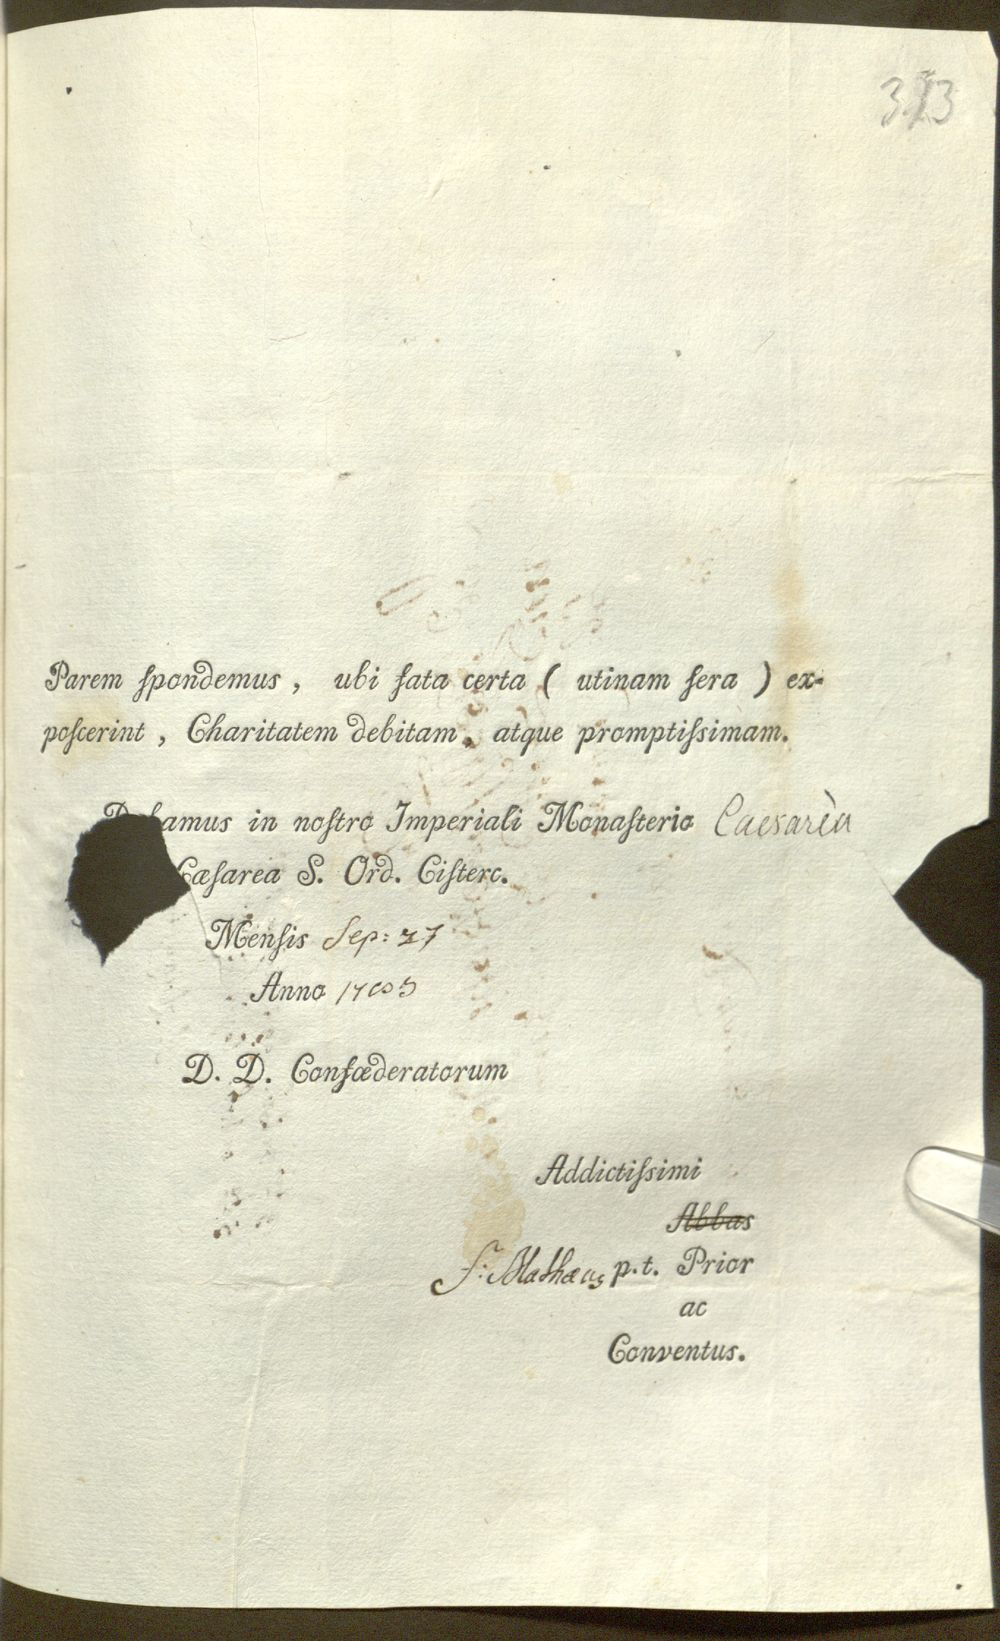 Parem spondemus, ubi fata certa ( utinam sera ) ex-
poscerint, Charitatem debitam, atque promptissimam.
Dabamus in nostro Imperiali Monasterio Caesareà
Cæsarea S. Ord. Cisterc.
Mensis Sep: 27
Anno
D. D. Confœderatorum
Addictissimi
Abbas
f: Mathæus p.t. Prior
ac
Conventus.